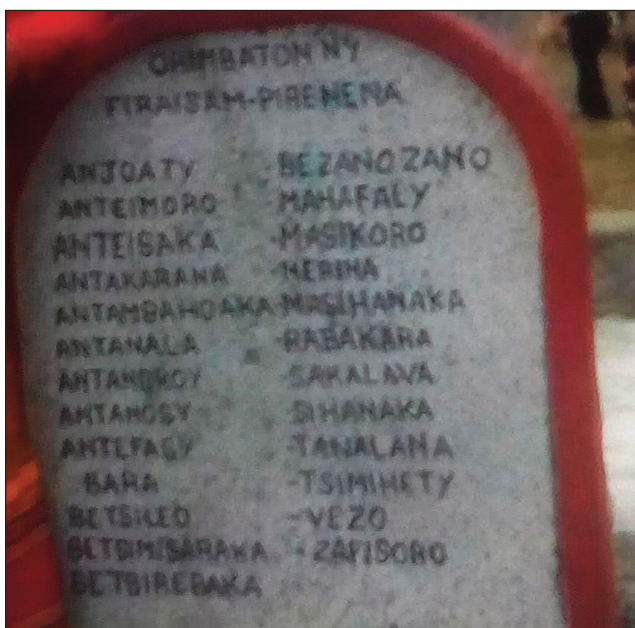 ORIMBATON'NY
FIRAISAM-PIRENENA
ANJOATY -BEZANOZANO
ANTEIMORO -MAHAFALY
ANTEISAKA -MASIKORO
ANTAKARANA -MERINA
ANTAMBAHOAKA-MASIHANAKA
ANTANALA -RABAKARA
ANTANDROY -SAKALAVA
ANTANOSY -SIHANAKA
ANTEFASY -TANALANA
BARA -TSIMIHETY
BETSILEO -VEZO
BETSIMISARAKA -ZAFISORO
BETSIREBAKA